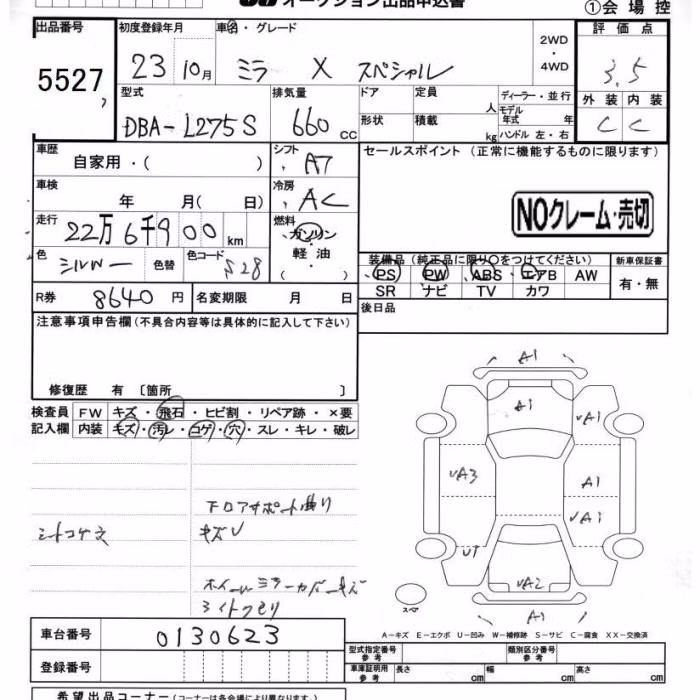 オークション出品申込書
①会場控
出品番号
5527
初度登録年月
23 10月
車名・グレード
ミラ X スペシャル
2WD
・
4WD
評価点
3.5
外装 内装
C C
型式
DBA-L275S
排気量
660 CC
ドア
形状
定員
人
積載
kg
ディーラー・並行
モデル
年式 年
ハンドル 左・右
車歴
自家用・( )
シフト
AT
セールスポイント (正常に機能するものに限ります)
車検
年 月( 日)
冷房
AC
NOクレーム・売切
走行
22万6千900 km
燃料
ガソリン
・
軽油
( )
色
シルバー
色替
色コード
S28
装備品 (純正品に限り○をつけてください)
PS PW ABS エアB AW
SR ナビ TV カワ
新車保証書
有・無
R券
8640 円
名変期限 月 日
後日品
注意事項申告欄(不具合内容等は具体的に記入して下さい)
修復歴 有 〔箇所 〕
検査員
記入欄
FW キズ・飛石・ヒビ割・リペア跡・×要
内装 キズ・汚レ・コゲ・穴・スレ・キレ・破レ
シートコゲ穴
下回アサポート曲り
キズU
ホイールミラーカバーキズ
ライトクモリ
A1
A1
UA1
UA3
A1
UA1
U1
UA2
A1
スペア
A-キズ E-エクボ U-凹み W-補修跡 S-サビ C-腐食 XX-交換済
車台番号
0130623
登録番号
型式指定番号
参考
類別区分番号
参考
車庫証明用
参考
長さ cm
幅 cm
高さ cm
希望出品コーナー(コーナーは各会場により異なります)